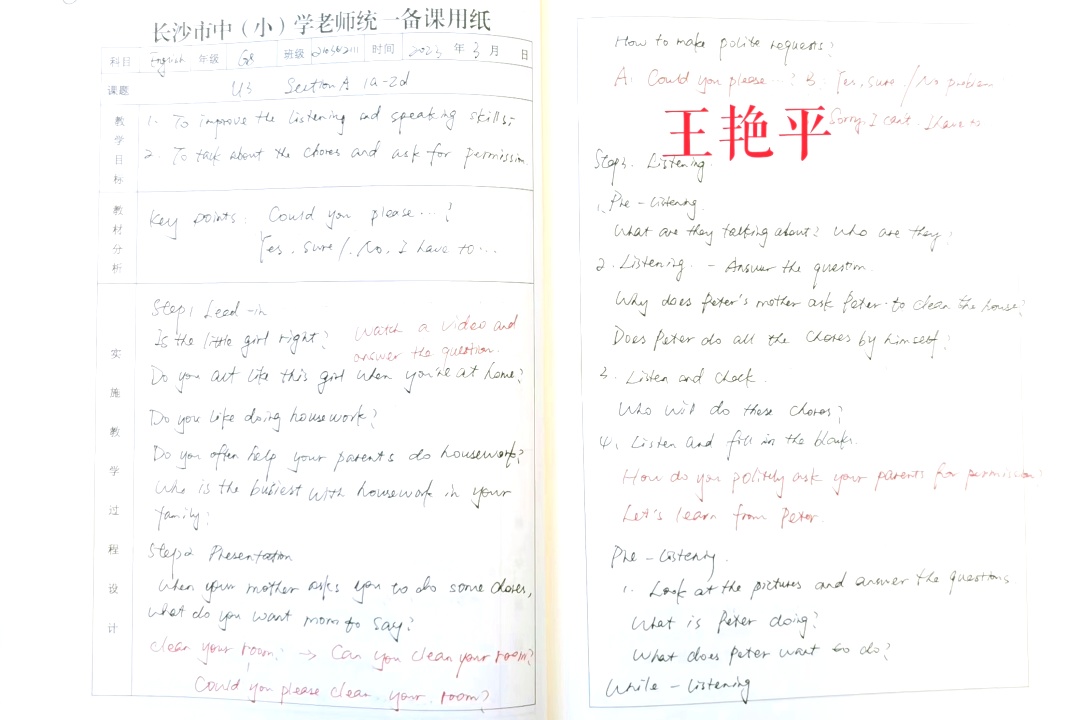 长沙市中（小）学老师统一备课用纸
科目 English 年级 G8 班级 时间 2023 年 3 月 日
课题 U3 Section A 1a-2d
教学目标
1. To improve the listening and speaking skills;
2. To talk about the chores and ask for permission
教材分析
Key points: Could you please...?
Yes, sure / No, I have to...
实施教学过程设计
Step1 Lead-in
Is the little girl right? Watch a video and
answer the question.
Do you act like this girl when you're at home?
Do you like doing housework?
Do you often help your parents do housework?
Who is the busiest with housework in your
family?
Step2 Presentation
When your mother asks you to do some chores,
what do you want mom to say?
clean your room? → Can you clean your room?
Could you please clean your room?
How to make polite requests?
A: Could you please...? B: Yes, sure / No problem
Sorry, I can't. I have to
王艳平
Step3. Listening
1. Pre-listening.
What are they talking about? Who are they?
2. Listening. - Answer the question.
Why does Peter's mother ask Peter to clean the house?
Does Peter do all the chores by himself?
3. Listen and check.
Who will do these chores?
4. Listen and fill in the blanks.
How do you politely ask your parents for permission?
Let's learn from Peter.
Pre-listening
1. Look at the pictures and answer the questions
What is Peter doing?
What does Peter want to do?
While-listening